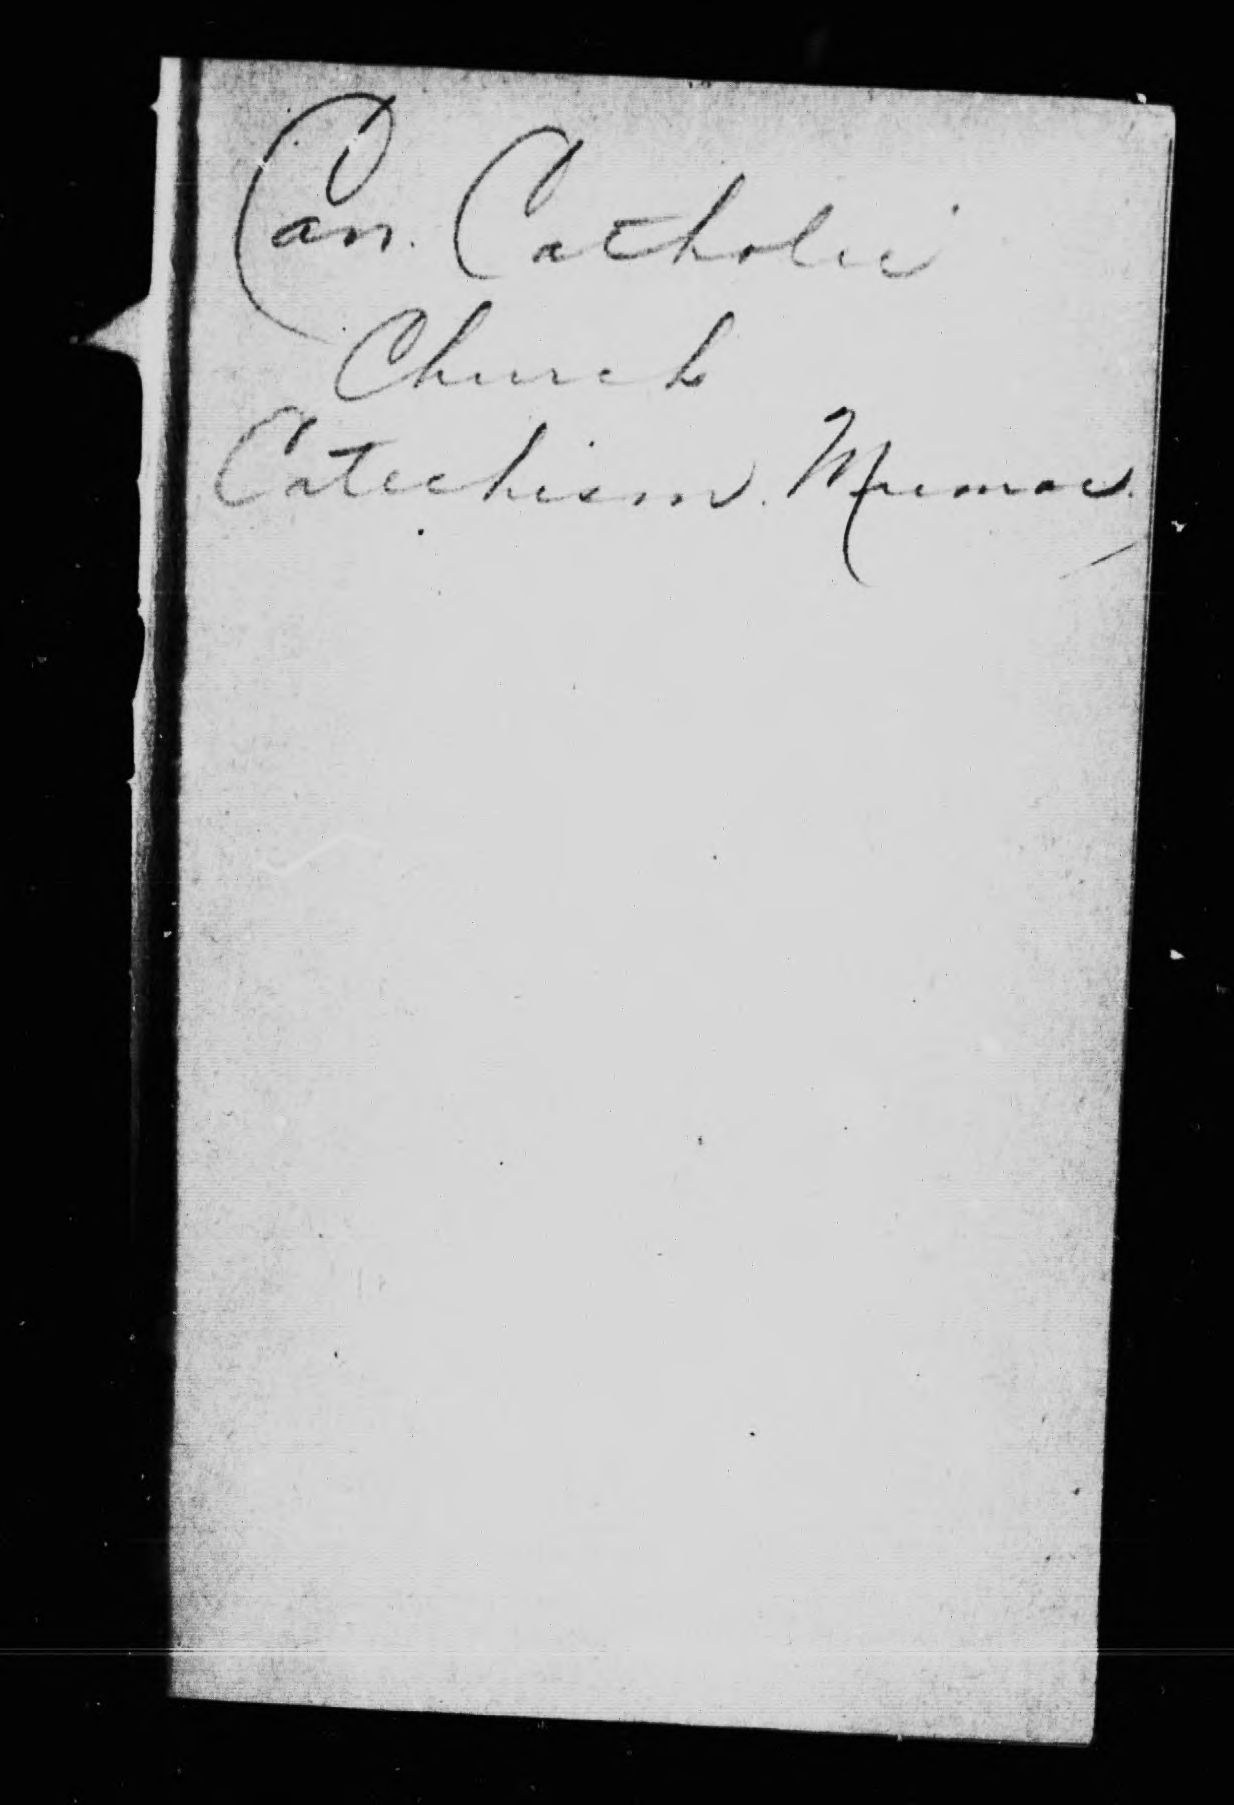 Can. Catholic
Church
Catechism. Micmac.